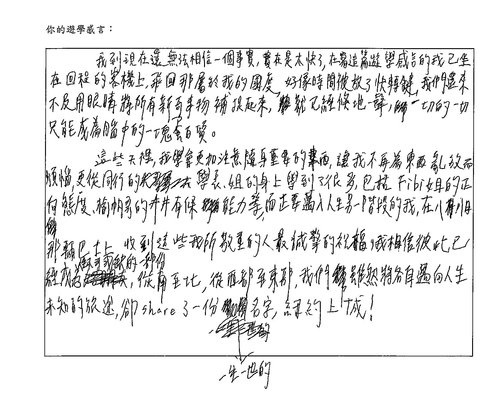 你的遊學感言:
我到現在還無法相信一個事實,實在是太快了,在寫這篇遊學感言的我已坐
在回程的客機上,飛回那屬於我的國度,好像時間被按了快轉鍵,我們還來
不及用眼睛將所有新奇事物捕捉起來,就已經條地一聲,一切的一切
只能成為腦中的一塊蛋白質。
這些天裡,我學會更加注意隨身重要的東西,讓我不再為東西亂放而
煩惱,更從同行的學長、組的身上學到了很多,包括Fibi女的正
向態度、的井井有條能力等,而走要邁入人生另一階段的我,在八月八日
那輛巴士上,收到這些我所敬重的人最誠摯的祝福,我相信彼此已
經成為的一部份,從南至北,從西部至東部,我們雖然將各自邁向人生
未知的旅途,卻share了一份名字,諾約上城!
一生一世的